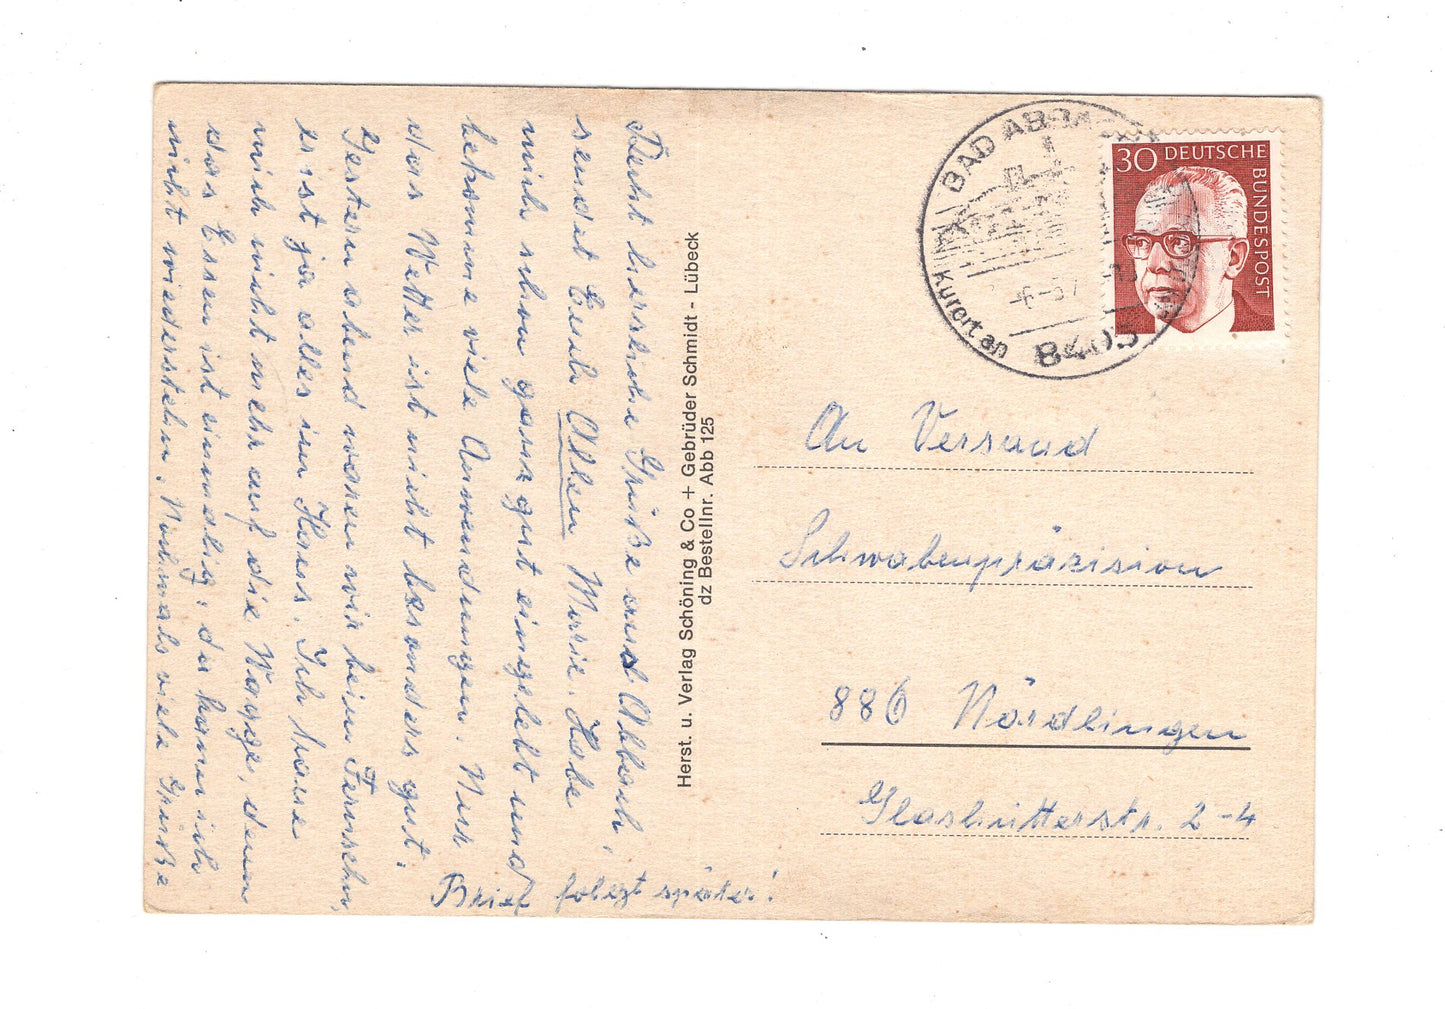 Recht herzliche Grüße aus Abbach,
sendet Euch Allen Marie. Habe
mich schon ganz gut eingelebt und
bekomme viele Anwendungen. Nur
das Wetter ist nicht besonders gut.
Gestern abend waren wir beim Fernsehn,
es ist ja alles im Haus. Ich traue
mich nicht mehr auf die Waage, denn
das Essen ist einmalig, da kann ich
nicht wiederstehn. Nochmals viele Grüße
Brief folgt später!
Herst. u. Verlag Schöning & Co + Gebrüder Schmidt - Lübeck
dz Bestellnr. Abb 125
BAD ABBACH
Kurort an
8403
30 DEUTSCHE
BUNDESPOST
An Versand
Schwabenpräzision
886 Nördlingen
Glashütterstr. 2-4